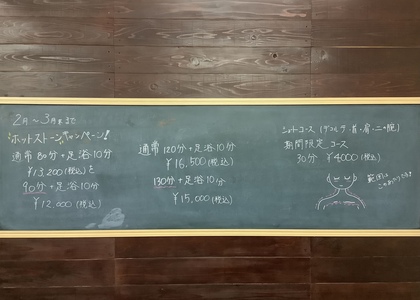 2月～3月末まで
ホットストーンキャンペーン!
通常 80分+足浴10分
￥13,200(税込)を
90分+足浴10分
￥12,000(税込)
通常 120分+足浴10分
￥16,500(税込)
130分+足浴10分
￥15,000(税込)
ショートコース(デコルテ・首・肩・二の腕)
期間限定コース
30分 ￥4000(税込)
範囲は
このあたりです